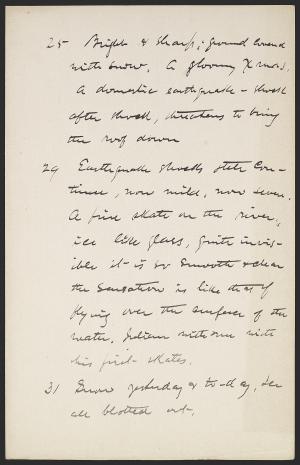 25 Bright & sharp; ground covered
with snow. A gloomy Xmas.
A domestic earthquake - shock
after shock, threatens to bring
the roof down
29 Earthquake shocks still con-
tinue, now mild, now severe.
A fine skate on the river,
ice like glass, quite invis-
ible it is so smooth & clear
the sensation is like that of
flying over the surface of the
water. Julian with me with
his first skates.
31 Snow yesterday & to-day, ice
all blotted out.